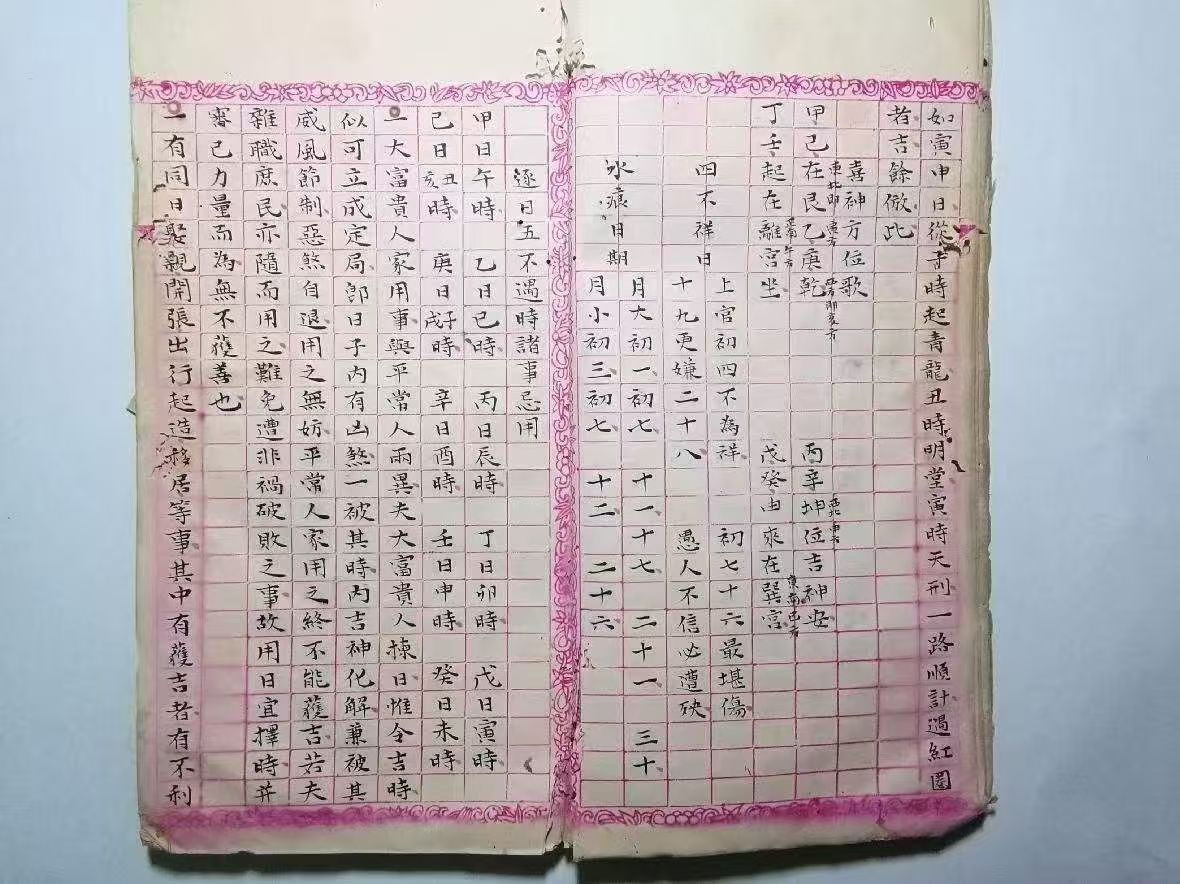 如寅申日從子時起青龍丑時明堂寅時天刑一路順計過紅圈
者吉餘倣此
喜神方位歌
甲己在艮乙庚乾 丙辛坤位吉神安
東北即 東方
西北即亥方
西北申方
丁壬起在離宮坐 戊癸由來在巽宮
正南午方
東南巳方
四不祥日
上官初四不為祥 初七十六最堪傷
十九更嫌二十八 愚人不信必遭殃
氷痕日期
月大初一初七 十一十七 二十一 三十
月小初三初七 十二 二十六
逐日五不遇時諸事忌用
甲日午時 乙日巳時 丙日辰時 丁日卯時 戊日寅時
己日丑亥時 庚日子戌時 辛日酉時 壬日申時 癸日未時
一大富貴人家用事與平常人兩異夫大富貴人揀日惟令吉時
似可立成定局郎日子內有凶煞一被其時丙吉神化解兼被其
威風節制惡煞自退用之無妨平常人家用之終不能獲吉若夫
雜職庶民亦隨而用之難免遭非禍破敗之事故用日宜擇時并
審己力量而為無不獲善也
一有同日娶親開張出行起造移居等事其中有獲吉者有不利